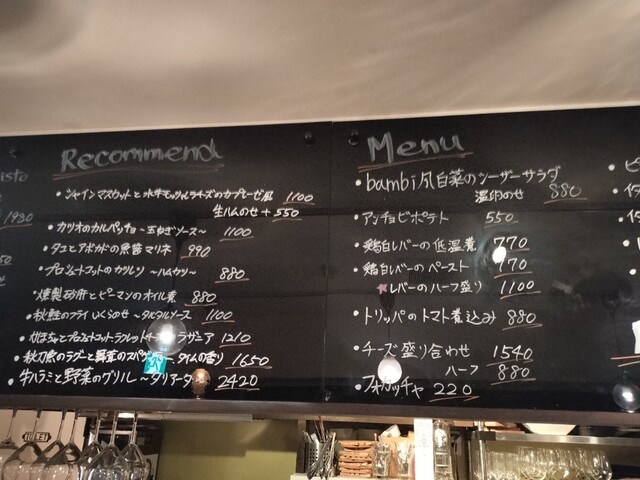 Recommend
・シャインマスカットと水牛モッツァレラチーズのカプレーゼ風 1100
生ハムのせ + 550
・カツオのカルパッチョ〜玉ねぎソース〜 1100
・タコとアボカドの魚醤マリネ 990
・プロシュートコットのカツレツ 〜ハムカツ〜 880
・燻製砂肝とピーマンのオイル煮 880
・秋鮭のフライいくらのせ 〜タルタルソース 1100
・かぼちゃとプロシュットコット ラザニア 1210
・秋刀魚のラグーと野菜のスパゲ タイムの香り 1650
・牛ハラミと野菜のグリル 〜タリアータ 2420
Menu
・bambi風白菜のシーザーサラダ
温卵のせ 880
・アンチョビポテト 550
・鶏白レバーの低温煮 770
・鶏白レバーのペースト 770
レバーのハーフ盛り 1100
・トリッパのトマト煮込み 880
・チーズ盛り合わせ 1540
ハーフ 880
・フォカッチャ 220
isto
1930
50